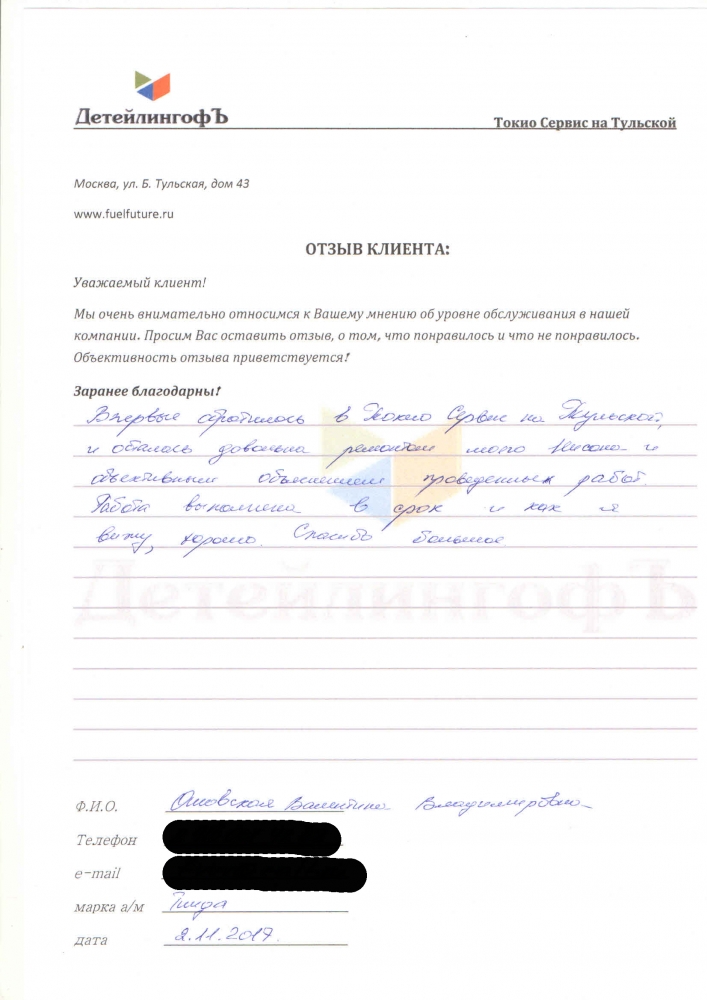 ДетейлингофЪ
Токио Сервис на Тульской
Москва, ул. Б. Тульская, дом 43
www.fuelfuture.ru
ОТЗЫВ КЛИЕНТА:
Уважаемый клиент!
Мы очень внимательно относимся к Вашему мнению об уровне обслуживания в нашей
компании. Просим Вас оставить отзыв, о том, что понравилось и что не понравилось.
Объективность отзыва приветствуется!
Заранее благодарны!
Впервые обратилось в Токио Сервис на Тульской,
и осталась довольна ремонтом моего Нисона и
объективным объяснением проведенных работ.
Работа выполнена в срок и как я
вижу, хорошо. Спасибо большое.
ДетейлингофЪ
Ф.И.О. Валентина Владимировна
Телефон
e-mail
марка а/м Тиида
дата 2.11.2017.